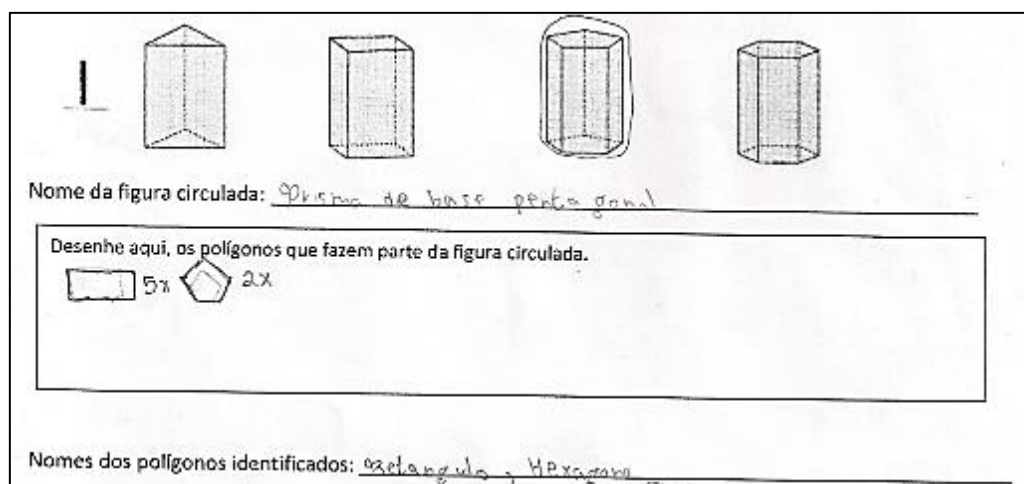 Nome da figura circulada: Prisma de base pentagonal
Desenhe aqui, os polígonos que fazem parte da figura circulada.
5x 2x
Nomes dos polígonos identificados: Retangulo, Hexagono